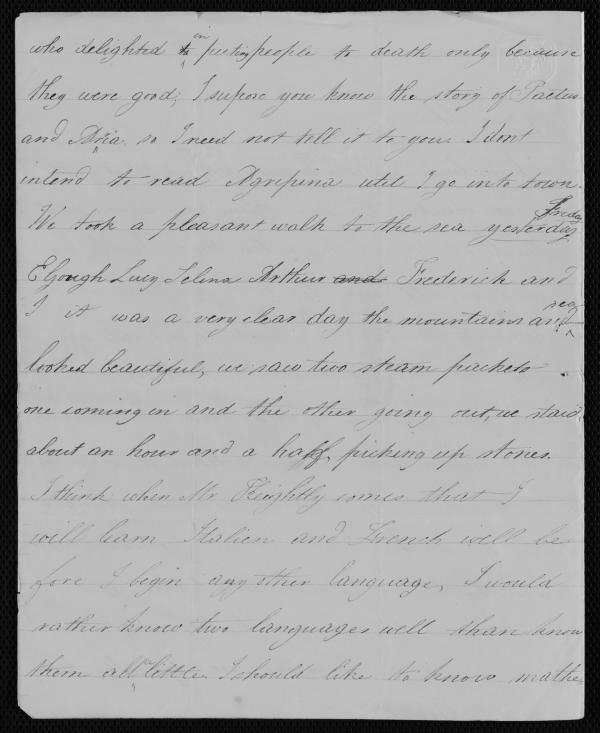 who delighted to in puting people to death only because
they were good; I supose you know the story of Paetus
and Aria. so I need not tell it to you. I dont
intend to read Agripina util I go into town.
We took a pleasant walk to the sea yesterday Friday
Lucy Selina Arthur and Frederick and
I it was a very clear day the mountains and sea
looked beautiful, we saw two steam packets
one coming in and the other going out, we staid
about an hour and a half, picking up stones.
I think when Mr Keightly comes that I
will learn Italien and French well be
fore I begin any other language, I would
rather know two languages well than know
them all a little. I should like to know mathe